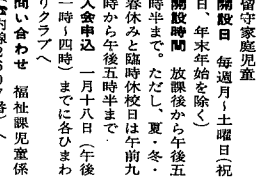 留守家庭児童
開設日　毎週月~土曜日(祝
日、年末年始を除く)
開設時間　放課後から午後五
時半まで。ただし、夏・冬・
春休みと臨時休校日は午前九
時から午後五時半まで
入会申込　一月十八日(午後
一時~四時)までに各ひまわ
りクラブへ
問い合わせ　福祉課児童係